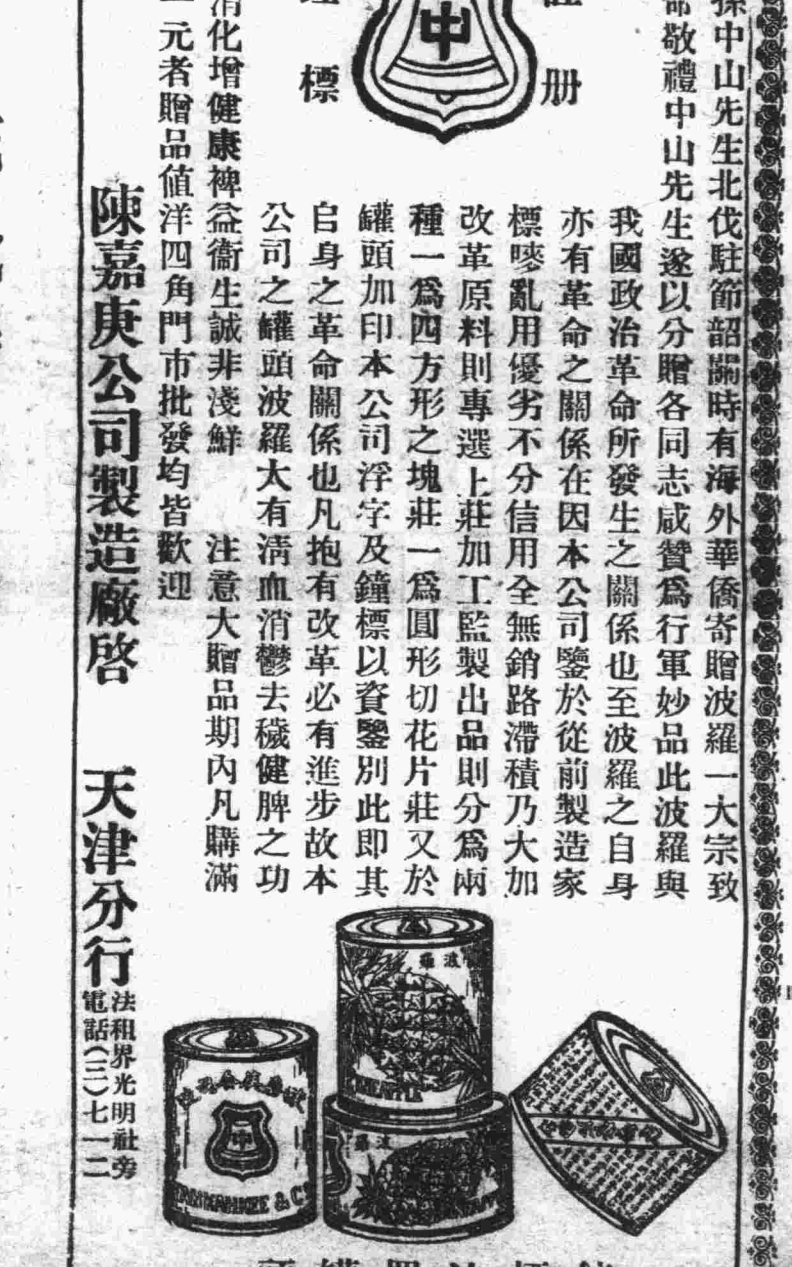 册
中
標
孫中山先生北伐駐節韶關時有海外華僑寄贈波羅一大宗致
敬禮中山先生遂以分贈各同志咸贊爲行軍妙品此波羅與
我國政治革命所發生之關係也至波羅之自身
亦有革命之關係在因本公司鑒於從前製造家
標嘜亂用優劣不分信用全無銷路滯積乃大加
改革原料則專選上莊加工監製出品則分爲兩
種一爲四方形之塊莊一爲圓形切花片莊又於
罐頭加印本公司浮字及鐘標以資鑒別此即其
自身之革命關係也凡抱有改革必有進步故本
公司之罐頭波羅大有淸血消鬱去穢健脾之功
消化增健康裨益衞生誠非淺鮮 注意大贈品期內凡購滿
一元者贈品値洋四角門市批發均皆歡迎
陳嘉庚公司製造廠啓 天津分行
法租界光明社旁
電話(三)七一二
波羅
PINEAPPLE
中
TAN KAH KEE & CO
波羅